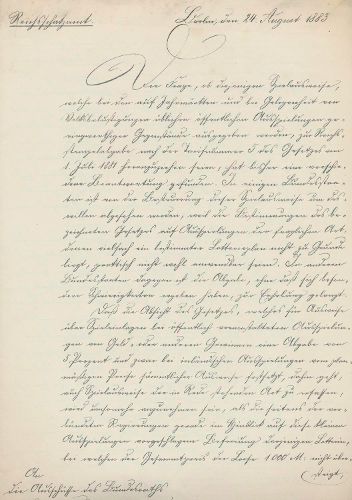 Reichsschatzamt.
Berlin, den 24. August 1883
Die Frage, ob diejenigen Spielausweise,
welche bei den auf Jahrmärkten und bei Gelegenheit von
Volksbelustigungen üblichen öffentlichen Ausspielungen ge-
ringwerthiger Gegenstände ausgegeben werden, zur Reichs-
stempelabgabe nach der Tarifnummer 5 des Gesetzes vom
1. Juli 1881 heranzuziehen seien, hat bisher eine verschie-
dene Beantwortung gefunden. In einigen Bundesstaa-
ten ist von der Besteuerung dieser Spielausweise um des-
willen abgesehen worden, weil die Bestimmungen des be-
zeichneten Gesetzes auf Ausspielungen der fraglichen Art,
denen vielfach ein bestimmter Lotterieplan nicht zu Grunde
liegt, praktisch nicht wohl anwendbar seien. In anderen
Bundesstaaten dagegen ist die Abgabe, ohne daß sich beson-
dere Schwierigkeiten ergeben haben, zur Erhebung gelangt.
Daß die Absicht des Gesetzes, welches für Ausweise
über Spieleinlagen bei öffentlich veranstalteten Ausspielun-
gen von Geld- oder anderen Gewinnen eine Abgabe von
5 Prozent und zwar bei inländischen Ausspielungen vom plan-
mäßigen Preise sämmtlicher Ausweise festsetzt, dahin geht,
auch Spielausweise der in Rede stehenden Art zu erfassen,
wird insofern anzunehmen sein, als die seitens der ver-
bündeten Regierungen gerade im Hinblick auf diese kleinen
Ausspielungen vorgeschlagene Befreiung derjenigen Lotterien,
bei welchen der Gesammtpreis der Loose 1000 M. nicht über-
steigt,
An
die Ausschüsse des Bundesraths